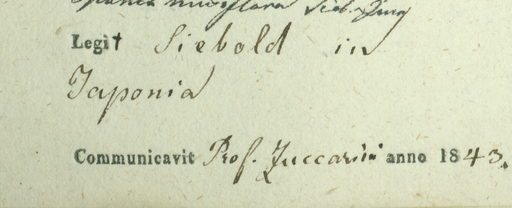 Sieb. Zucc
Legit Siebold in
Japonia
Communicavit Prof. Zuccarini anno 1843.